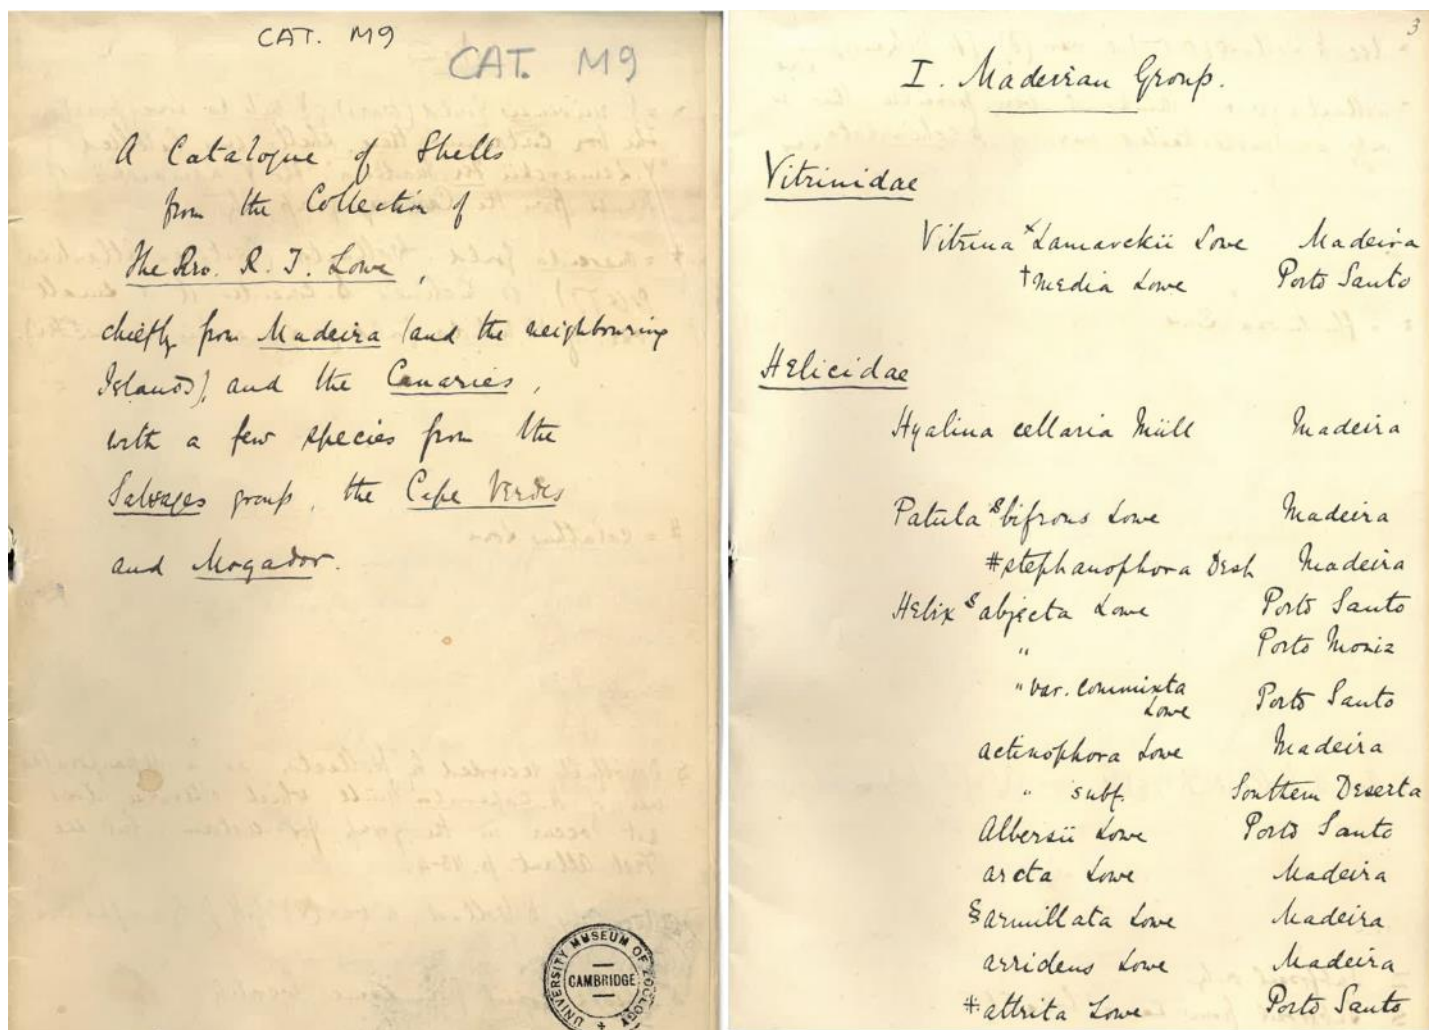 CAT. M9
CAT. M9
A Catalogue of Shells
from the Collection of
The Rev. R. T. Lowe,
chiefly from Madeira (and the neighbouring
Islands), and the Canaries,
with a few species from the
Salvages group, the Cape Verdes
and Mogador.
UNIVERSITY MUSEUM OF ZOOLOGY
CAMBRIDGE
3
I. Madeiran Group.
Vitrinidae
Vitrina × Lamarckii Lowe Madeira
† media Lowe Porto Santo
Helicidae
Hyalina cellaria Müll Madeira
Patula § bifrons Lowe Madeira
# stephanophora Desh Madeira
Helix § abjecta Lowe Porto Santo
" Porto Moniz
" var. commixta
Lowe Porto Santo
actinophora Lowe Madeira
" subf. Southern Deserta
Albersii Lowe Porto Santo
arcta Lowe Madeira
§ armillata Lowe Madeira
arridens Lowe Madeira
* attrita Lowe Porto Santo